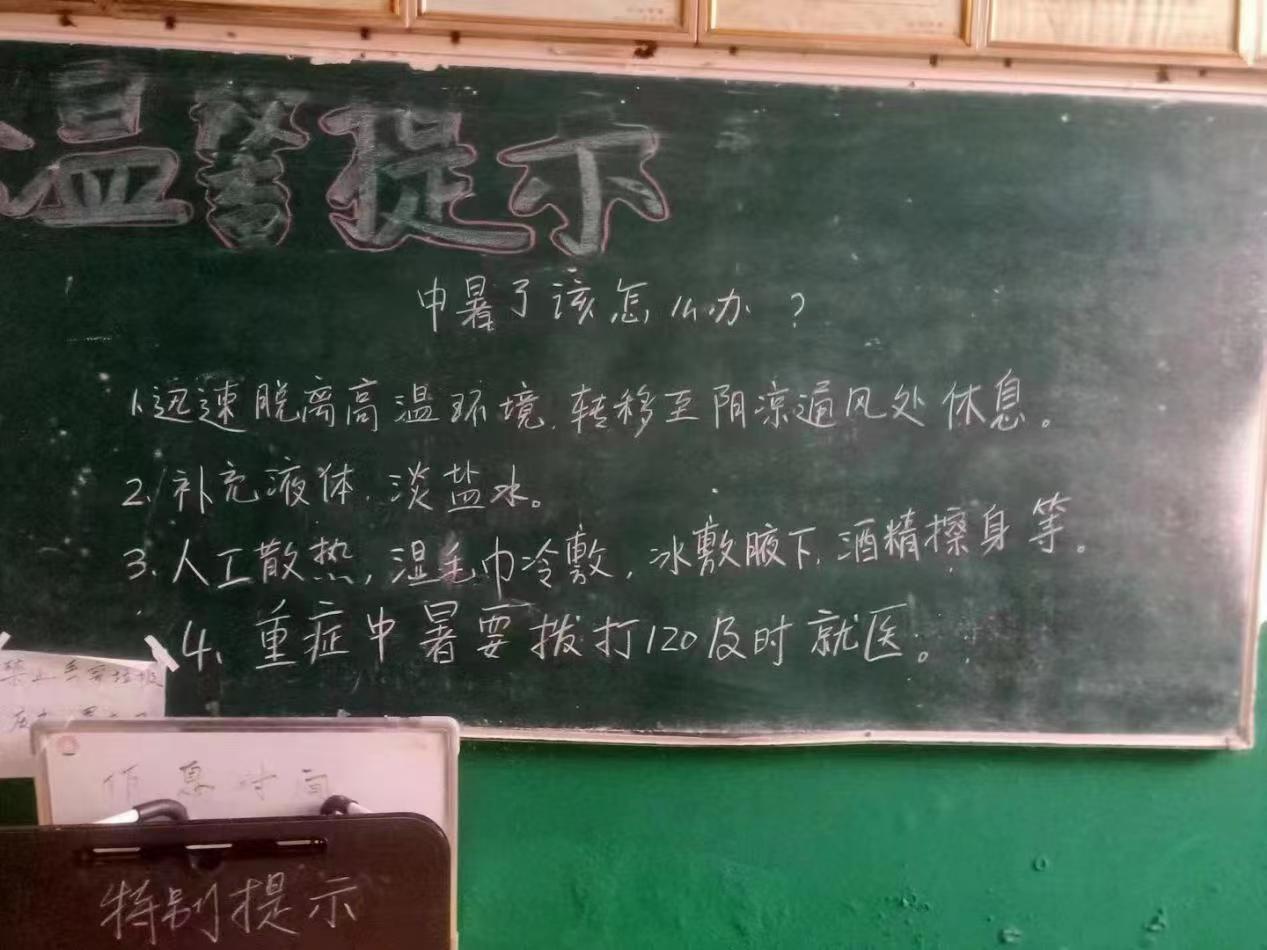 温警提示
中暑了该怎么办?
1.迅速脱离高温环境,转移至阴凉通风处休息。
2.补充液体,淡盐水。
3.人工散热,湿毛巾冷敷,冰敷腋下,酒精擦身等。
4、重症中暑要拨打120及时就医。
禁止
作息时间
特别提示